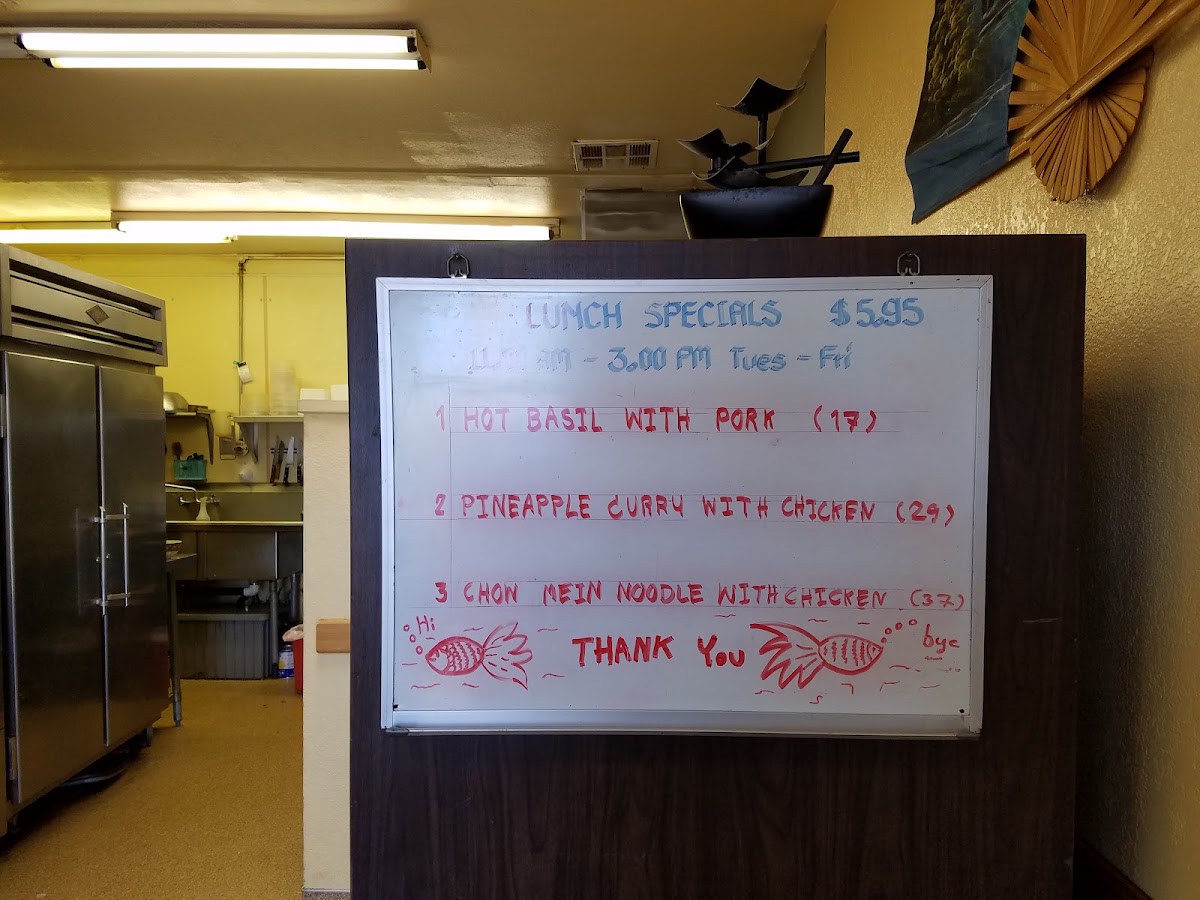 LUNCH SPECIALS $5.95
11.00 AM - 3.00 PM Tues - Fri
1 HOT BASIL WITH PORK (17)
2 PINEAPPLE CURRY WITH CHICKEN (29)
3 CHOW MEIN NOODLE WITH CHICKEN (37)
Hi THANK YOU bye